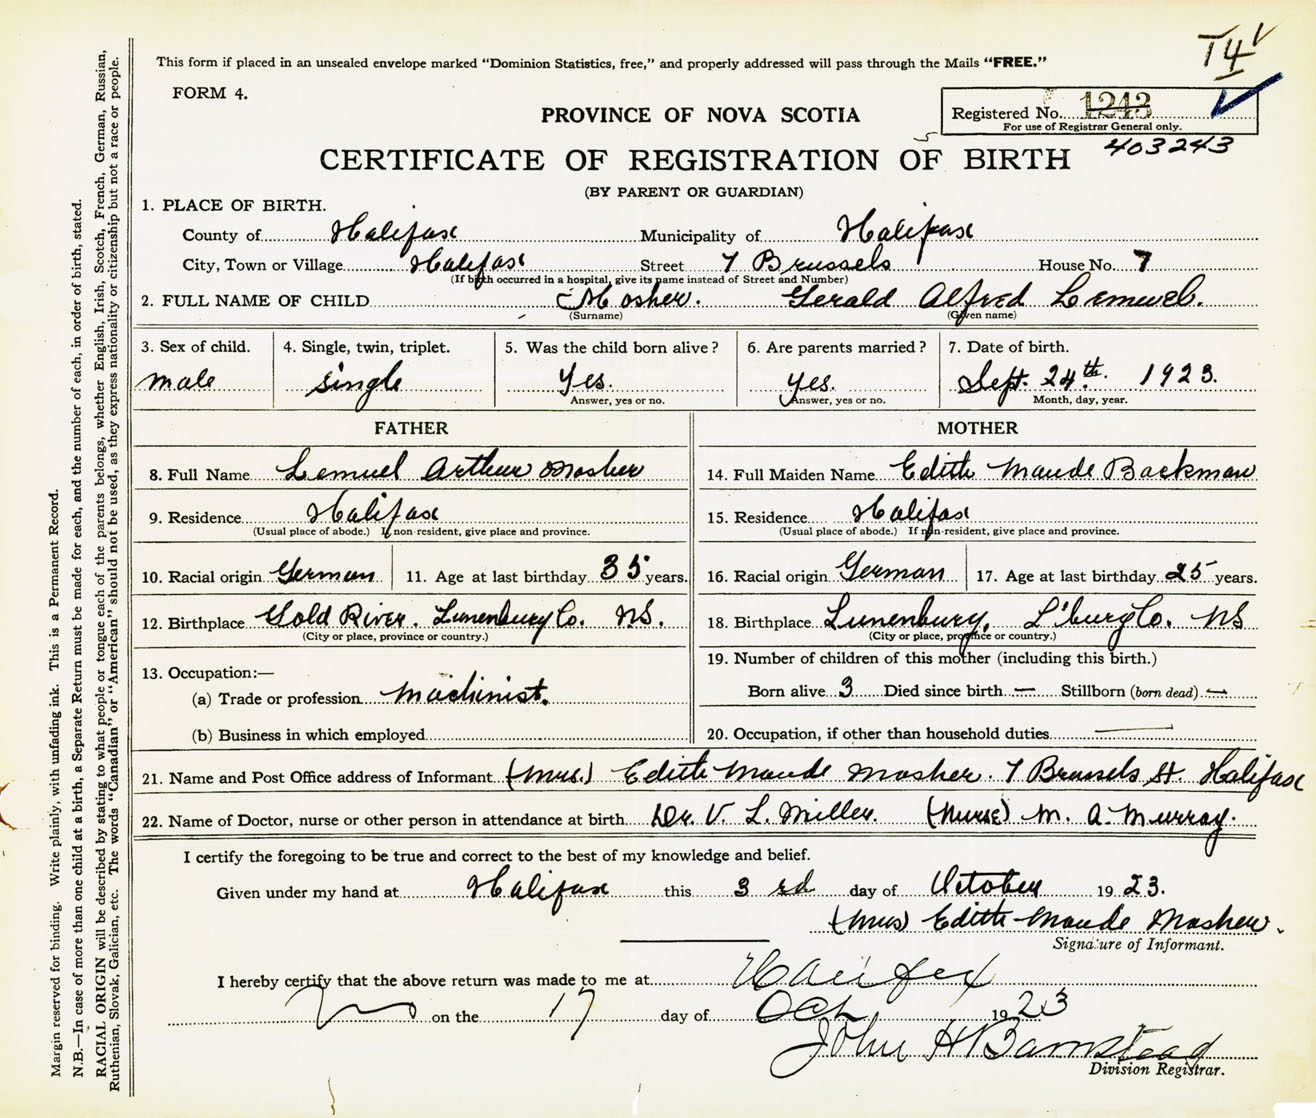 T4
This form if placed in an unsealed envelope marked "Dominion Statistics, free," and properly addressed will pass through the Mails "FREE."
FORM 4.
PROVINCE OF NOVA SCOTIA
Registered No. 1243
For use of Registrar General only.
403243
CERTIFICATE OF REGISTRATION OF BIRTH
(BY PARENT OR GUARDIAN)
1. PLACE OF BIRTH.
County of Halifax Municipality of Halifax
City, Town or Village Halifax Street 7 Brussels House No. 7
(If birth occurred in a hospital, give its name instead of Street and Number)
2. FULL NAME OF CHILD Mosher. Gerald Alfred Lemuel.
(Surname) (Given name)
3. Sex of child. 4. Single, twin, triplet. 5. Was the child born alive? 6. Are parents married? 7. Date of birth.
male single Yes. Yes. Sept. 24th. 1923.
Answer, yes or no. Answer, yes or no. Month, day, year.
FATHER MOTHER
8. Full Name Lemuel Arthur Mosher 14. Full Maiden Name Edith Maude Backman
9. Residence Halifax 15. Residence Halifax
(Usual place of abode.) If non-resident, give place and province. (Usual place of abode.) If non-resident, give place and province.
10. Racial origin German 11. Age at last birthday 35 years. 16. Racial origin German 17. Age at last birthday 25 years.
12. Birthplace Gold River. Lunenburg Co. NS. 18. Birthplace Lunenburg, L'burg Co. NS
(City or place, province or country.) (City or place, province or country.)
13. Occupation:— 19. Number of children of this mother (including this birth.)
(a) Trade or profession machinist. Born alive 3 Died since birth — Stillborn (born dead) —
(b) Business in which employed 20. Occupation, if other than household duties —
21. Name and Post Office address of Informant (Mrs.) Edith Maude Mosher. 7 Brussels St. Halifax
22. Name of Doctor, nurse or other person in attendance at birth Dr. V. L. Miller. (Nurse) M. A. Murray.
I certify the foregoing to be true and correct to the best of my knowledge and belief.
Given under my hand at Halifax this 3rd day of October 1923.
(Mrs) Edith Maude Mosher.
Signature of Informant.
I hereby certify that the above return was made to me at Halifax
on the 17 day of Oct 1923
John H Barnstead
Division Registrar.
Margin reserved for binding. Write plainly, with unfading ink. This is a Permanent Record.
N.B.—In case of more than one child at a birth, a Separate Return must be made for each, and the number of each, in order of birth, stated.
RACIAL ORIGIN will be described by stating to what people or tongue each of the parents belongs, whether English, Irish, Scotch, French, German, Russian,
Ruthenian, Slovak, Galician, etc. The words "Canadian" or "American" should not be used, as they express nationality or citizenship but not a race or people.